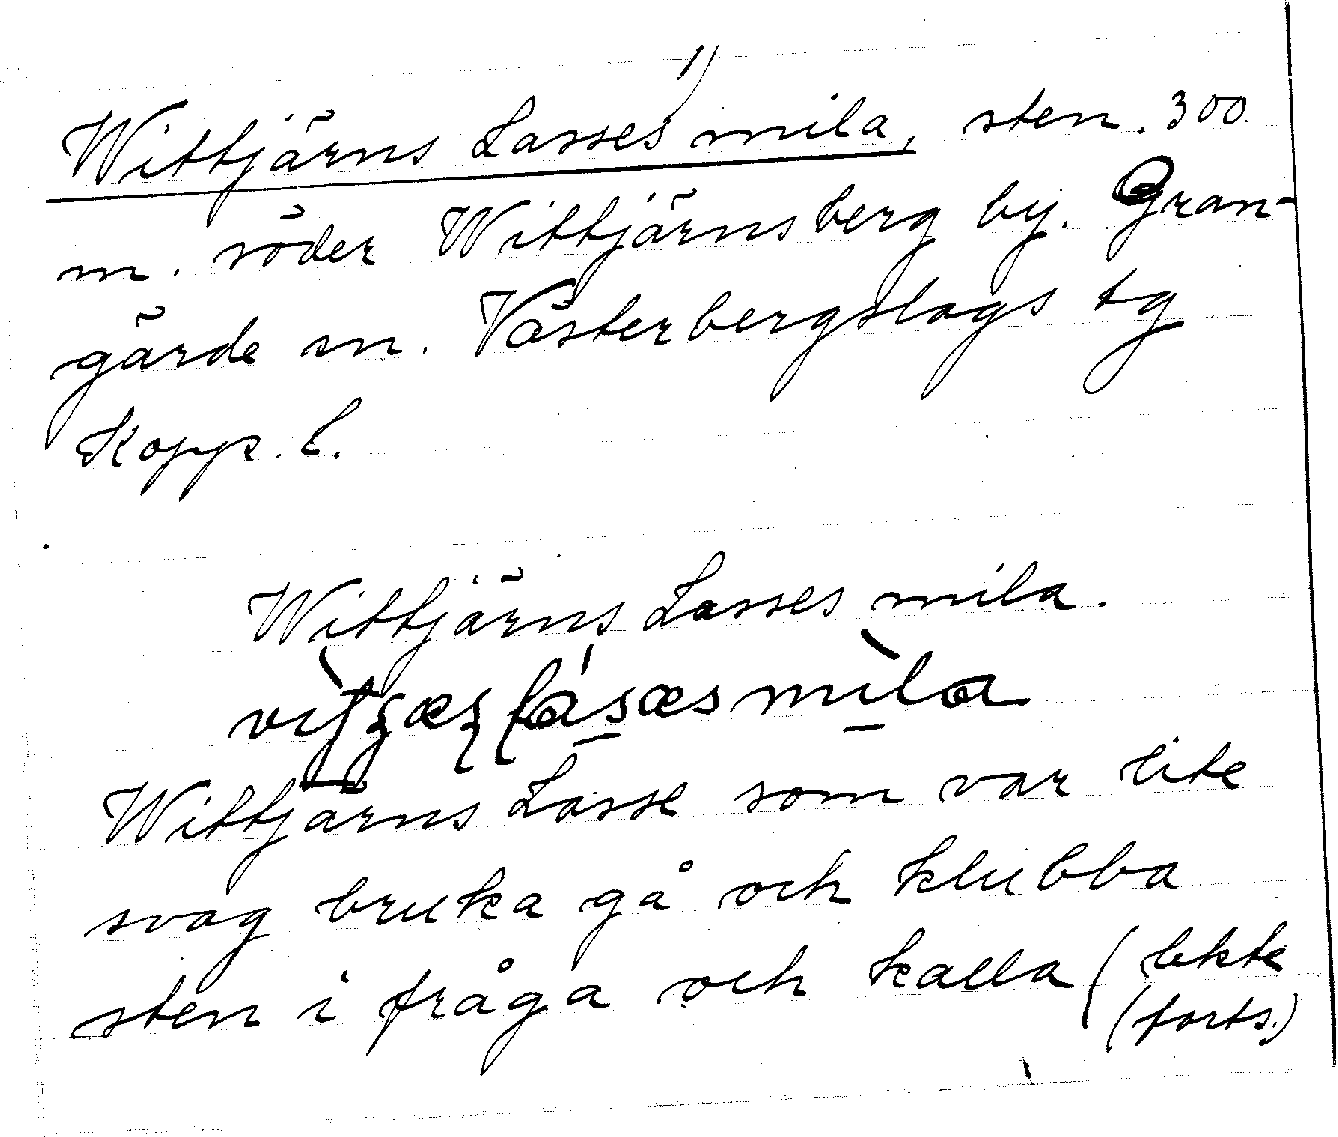 1)
Wittjärns Lasses mila, sten. 300
m. söder Wittjärnsberg by. Gran-
gärde sn. Västerbergslags tg
Kopp. l.
Wittjärns Lasses mila.
Wittjärns Lasse som var lite
svag bruka gå och klubba
sten i fråga och kalla (lekte
(forts.)